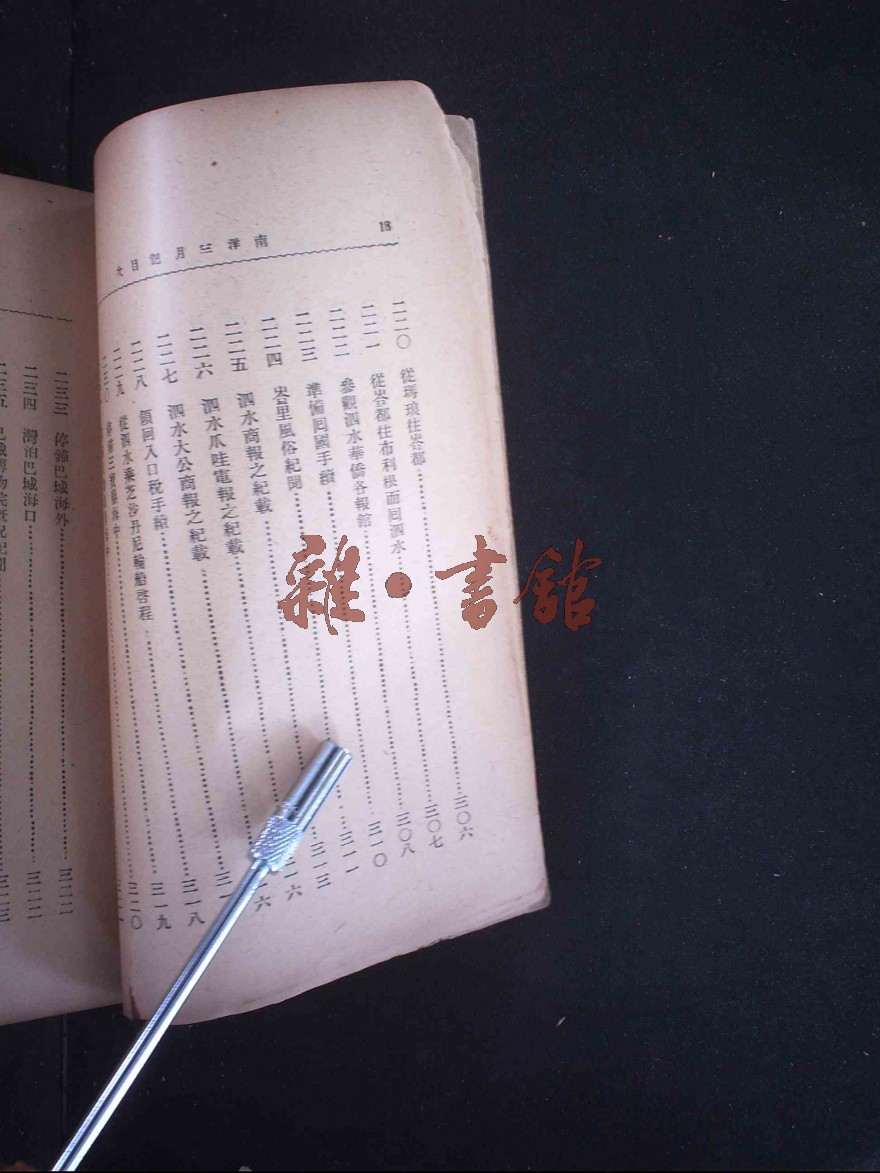 18
南洋三月記目次
二二〇 從瑪琅往峇都 三〇六
二二一 從峇都往布利根而回泗水 三〇七
二二二 參觀泗水華僑各報館 三〇八
二二三 準備囘國手續 三一〇
二二四 峇里風俗紀聞 三一一
二二五 泗水商報之紀載 三一三
二二六 泗水爪哇電報之紀載
二二七 泗水大公商報之紀載
二二八 領回入口稅手續 三一八
二二九 從泗水乘芝沙丹尼輪船啓程 三一九
二三〇 三二〇
二三三 停錨巴城海外 三二二
二三四 灣泊巴城海口 三二二
二三五 三二三
雜·書館